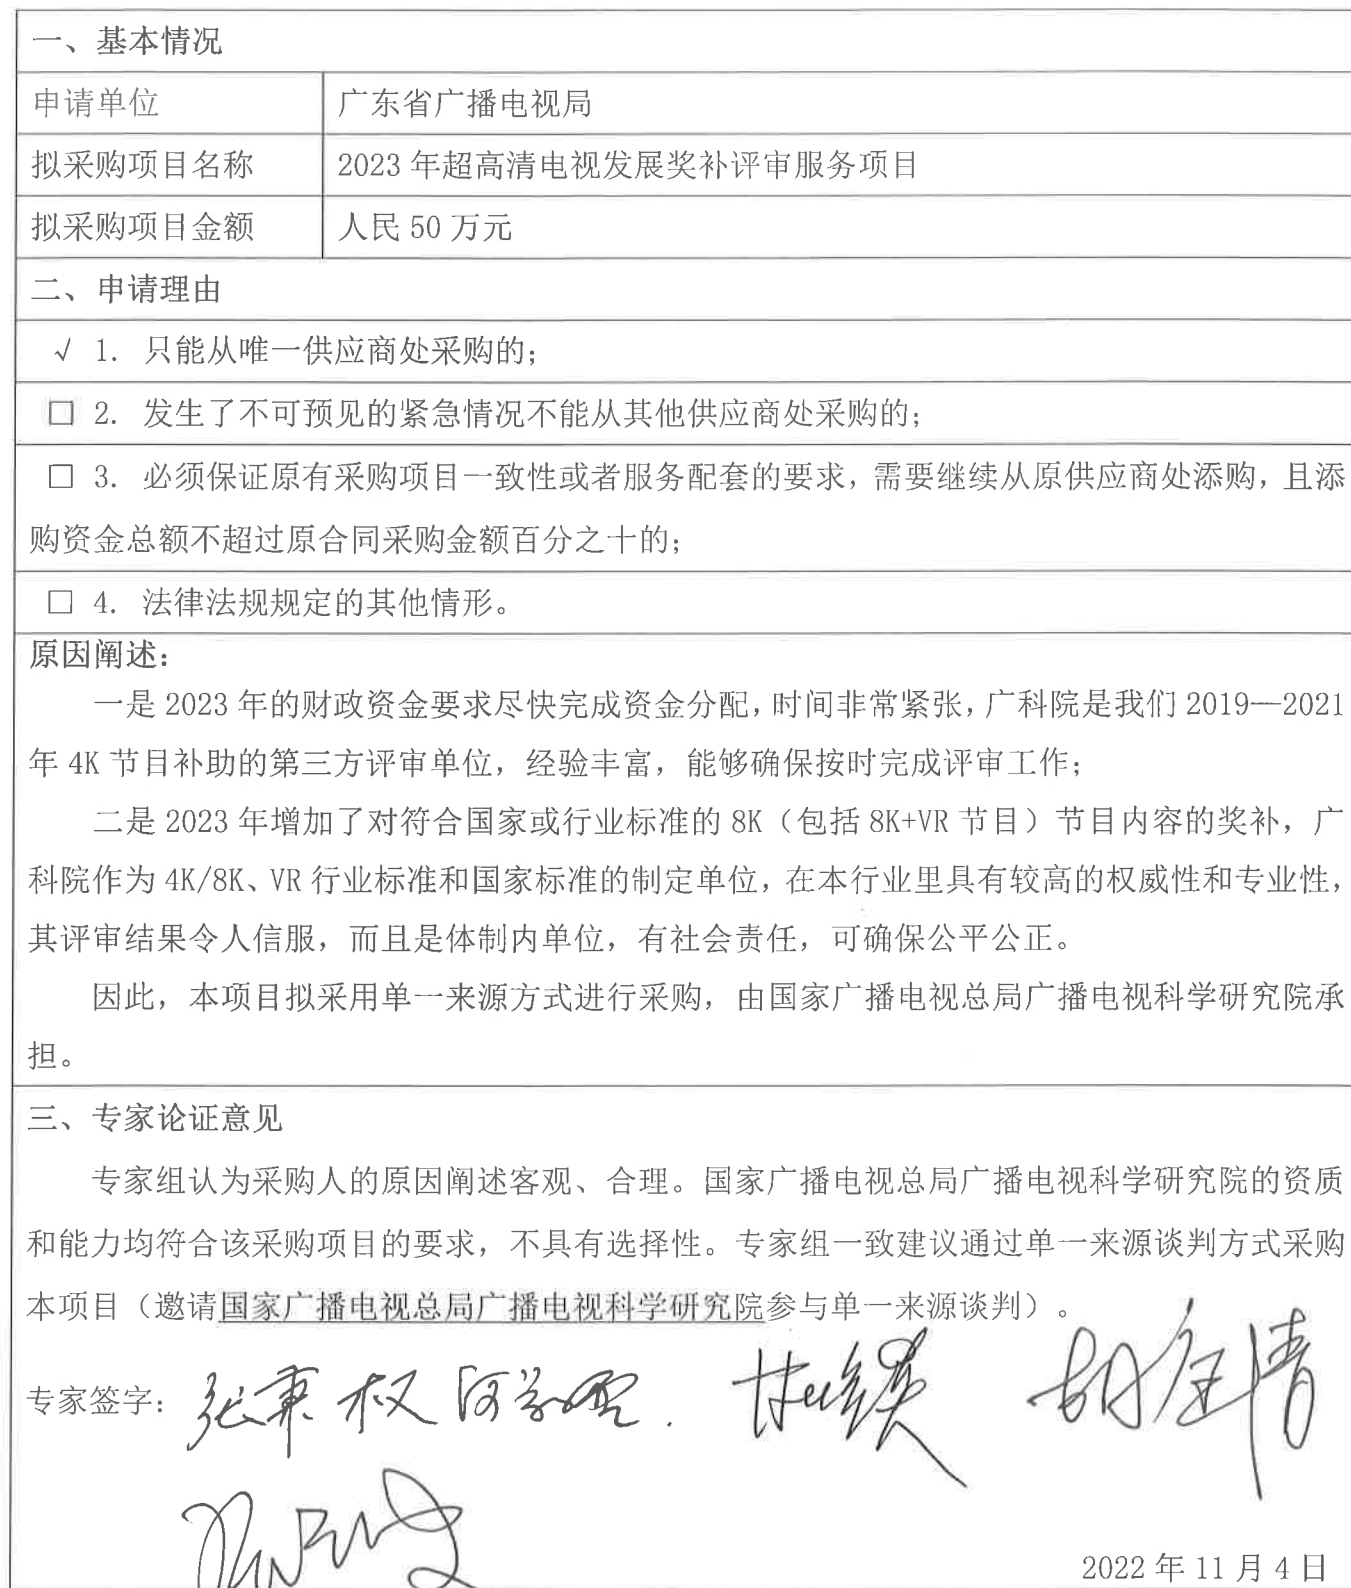 一、基本情况
申请单位 广东省广播电视局
拟采购项目名称 2023年超高清电视发展奖补评审服务项目
拟采购项目金额 人民50万元
二、申请理由
√ 1. 只能从唯一供应商处采购的；
□ 2. 发生了不可预见的紧急情况不能从其他供应商处采购的；
□ 3. 必须保证原有采购项目一致性或者服务配套的要求，需要继续从原供应商处添购，且添
购资金总额不超过原合同采购金额百分之十的；
□ 4. 法律法规规定的其他情形。
原因阐述：
一是2023年的财政资金要求尽快完成资金分配，时间非常紧张，广科院是我们2019—2021
年4K节目补助的第三方评审单位，经验丰富，能够确保按时完成评审工作；
二是2023年增加了对符合国家或行业标准的8K（包括8K+VR节目）节目内容的奖补，广
科院作为4K/8K、VR行业标准和国家标准的制定单位，在本行业里具有较高的权威性和专业性，
其评审结果令人信服，而且是体制内单位，有社会责任，可确保公平公正。
因此，本项目拟采用单一来源方式进行采购，由国家广播电视总局广播电视科学研究院承
担。
三、专家论证意见
专家组认为采购人的原因阐述客观、合理。国家广播电视总局广播电视科学研究院的资质
和能力均符合该采购项目的要求，不具有选择性。专家组一致建议通过单一来源谈判方式采购
本项目（邀请国家广播电视总局广播电视科学研究院参与单一来源谈判）。
专家签字： 张秉权
2022年11月4日